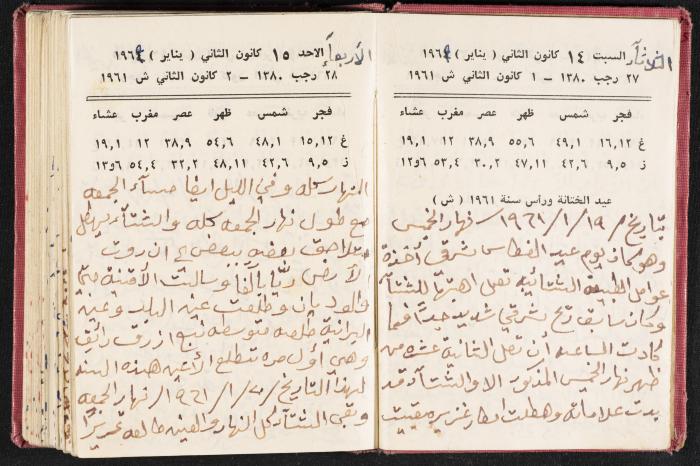 الثلاثاء السبت ١٤ كانون الثاني ( يناير ) ١٩٦٤
٢٧ رجب ١٣٨٠ — ١ كانون الثاني ش ١٩٦١
فجر شمس ظهر عصر مغرب عشاء
غ ١٦,١٢ ٤٩,١ ٥٥,٦ ٣٨,٩ ١٢ ١٩,١
ز ٩,٥ ٤٢,٦ ٤٧,١١ ٣٠,٢ ٥٣,٤ ٦و١٣
عيد الختانة ورأس سنة ١٩٦١ ( ش )
بتاريخ ١٩/١/١٩٦١ نهار الخميس
وهو كان يوم عيد الغطاس شرقي أخذة
عوامل الطبيعة الشتائيه تعمل اهبتها للشتاء
وكان سابق ريح شرقي شديد جيداً فما
كادت الساعه أن تصل الثانية عشره من
ظهر نهار الخميس المذكور الا والشتاء قد
بدت علاماته وهطلت امطار غزيره بقيت
الأربعاء الاحد ١٥ كانون الثاني ( يناير ) ١٩٦٤
٢٨ رجب ١٣٨٠ — ٢ كانون الثاني ش ١٩٦١
فجر شمس ظهر عصر مغرب عشاء
غ ١٥,١٢ ٤٨,١ ٥٤,٦ ٣٨,٩ ١٢ ١٩,١
ز ٩,٥ ٤٢,٦ ٤٨,١١ ٣٢,٢ ٥٤,٤ ٦و١٣
النهار كله وفي الليل ايضا مساء الجمعه
مع طول نهار الجمعه كله والشتاء يهطل
متلاحق بعضه ببعض الى ان روت
الأرض ريا بالغا وسالت الأقنية حتى
والوديان وطلعت عين البلد وعين
البرانية طلعه متوسطه نبع ازرق رائق
وهي أول مره تتطلع الأعين هذه السنه
لهذا التاريخ ٢٠/١/١٩٦١ نهار الجمعه
وبقى الشتاء كل النهار والعين طالعه